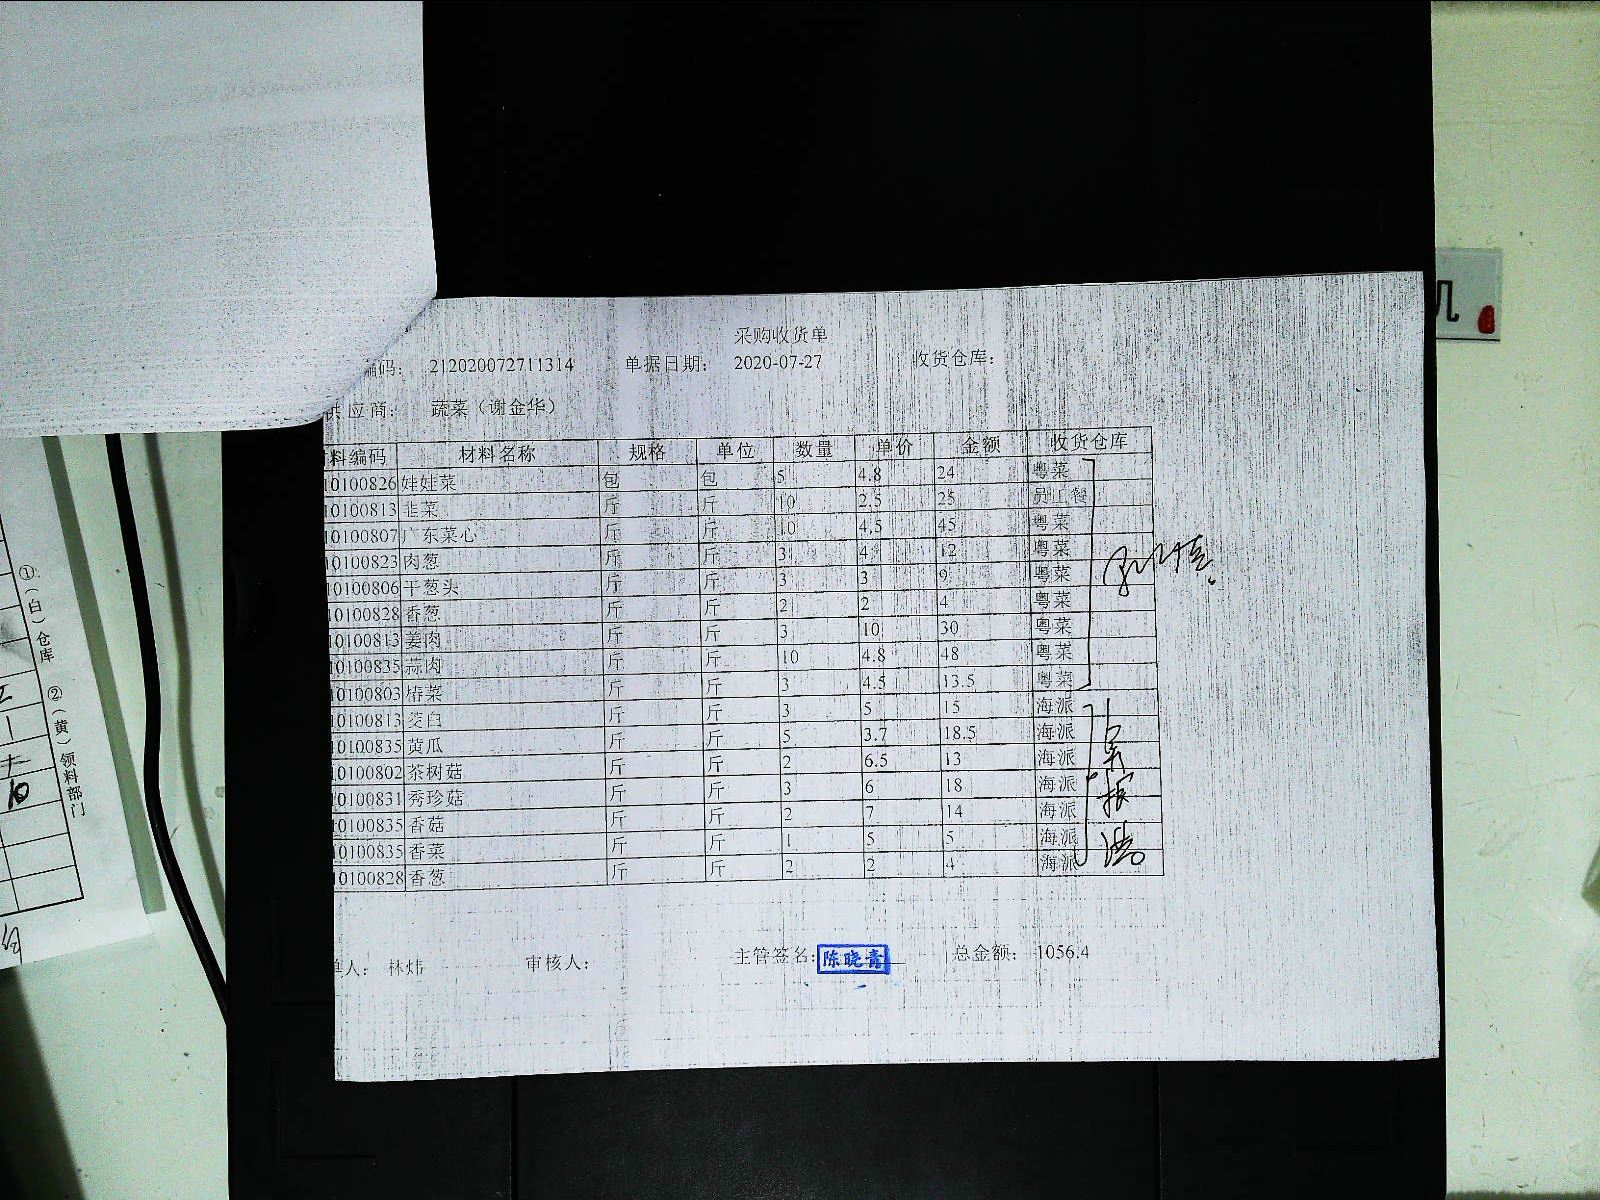 采购收货单
编码： 212020072711314 单据日期： 2020-07-27 收货仓库：
供应商： 蔬菜（谢金华）
料编码 材料名称 规格 单位 数量 单价 金额 收货仓库
10100826 娃娃菜 包 包 5 4.8 24 粤菜
10100813 韭菜 斤 斤 10 2.5 25 员工餐
10100807 广东菜心 斤 斤 10 4.5 45 粤菜
10100823 肉葱 斤 斤 3 4 12 粤菜
10100806 干葱头 斤 斤 3 3 9 粤菜
10100828 香葱 斤 斤 2 2 4 粤菜
10100813 姜肉 斤 斤 3 10 30 粤菜
10100835 蒜肉 斤 斤 10 4.8 48 粤菜
10100803 椿菜 斤 斤 3 4.5 13.5 粤菜
10100813 茭白 斤 斤 3 5 15 海派
10100835 黄瓜 斤 斤 5 3.7 18.5 海派
10100802 茶树菇 斤 斤 2 6.5 13 海派
10100831 秀珍菇 斤 斤 3 6 18 海派
10100835 香菇 斤 斤 2 7 14 海派
10100835 香菜 斤 斤 1 5 5 海派
10100828 香葱 斤 斤 2 2 4 海派
单人： 林炜 审核人： 主管签名： 陈晓青 总金额： 1056.4
①（白）仓库 ②（黄）领料部门
10
机